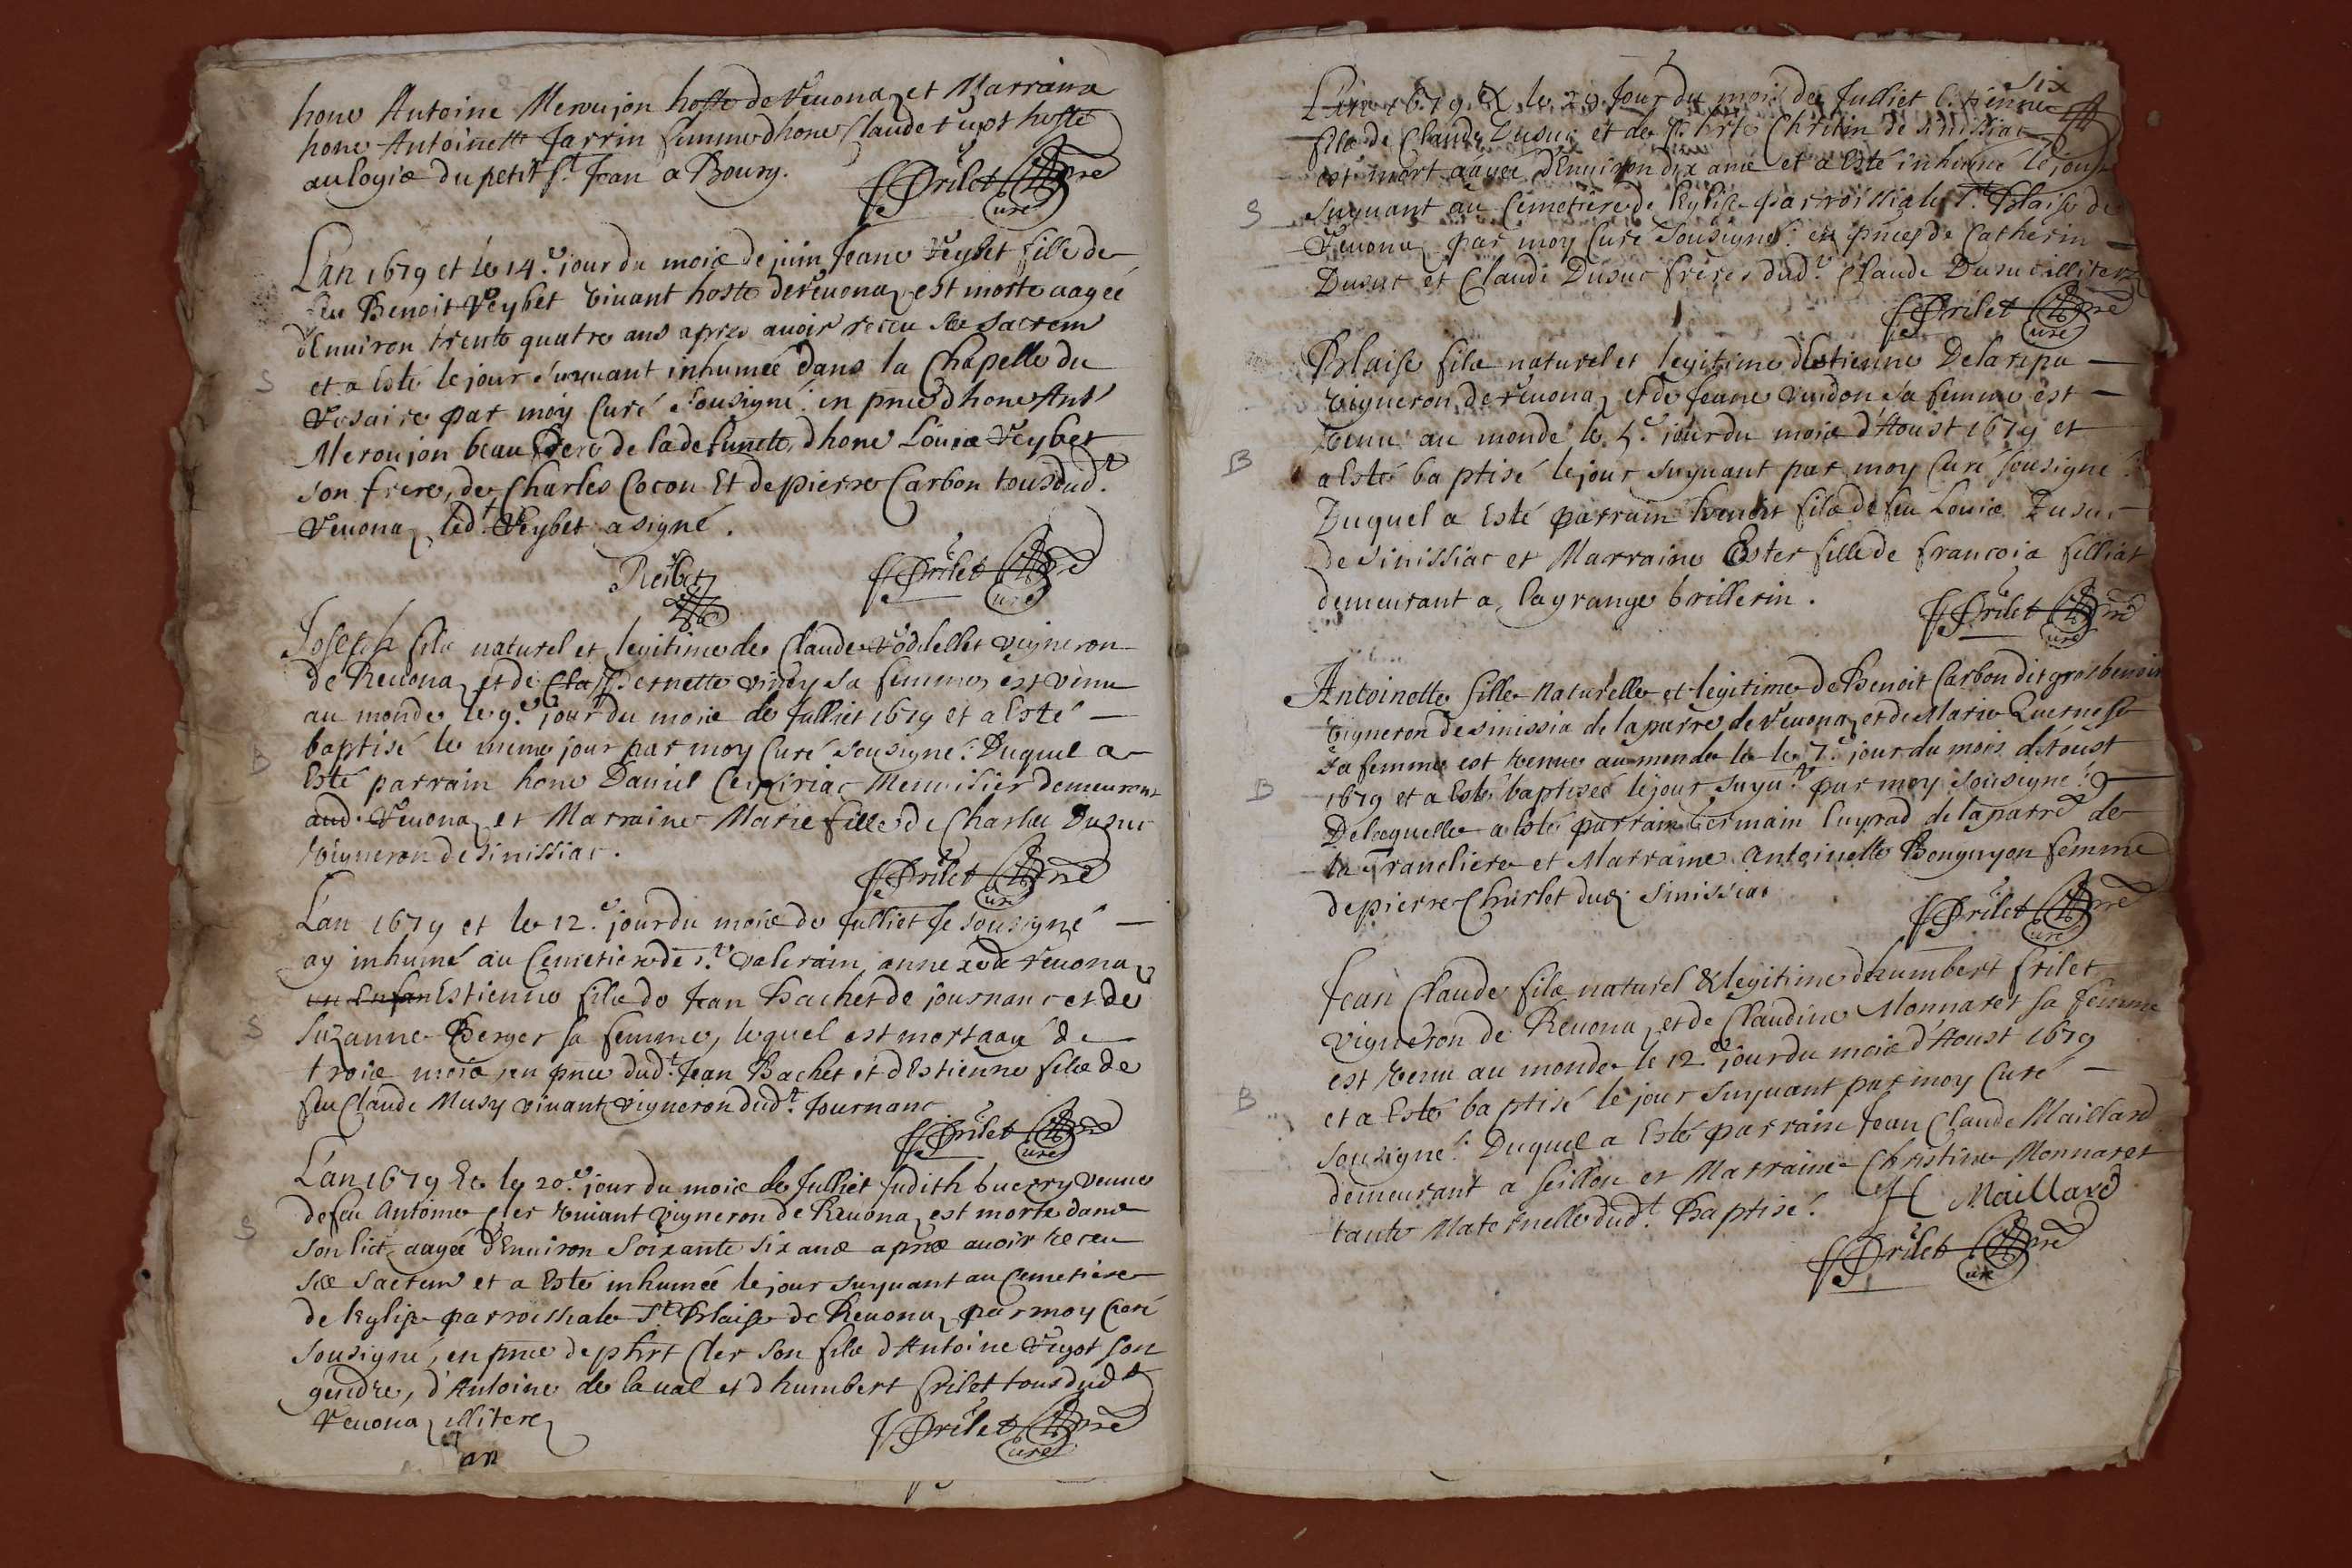 hone Antoine Meroujon hoste de Reuona et Marraina
hone Antoinette Jarrin femme dhone Claude hoste
au logis du petit St Jean a Bourg.
ffrilet pre
Curé
L'an 1679 et le 14.e jour du mois de juin Jeane Reybet fille de
feu Benoit Reybet viuant hoste de reuona est morte aagée
d'Enuiron trente quatre ans apres auoir receu Sacrem
et a Esté le jour Suyuant inhumée dans la Chapelle du
rosaire par moy Curé Sousigné. en pnce d hone Ant
Meroujon beau frere de la defuncte, d hone Louis Reybet
son frere, de Charles Cocon Et de pierre Carbon tous dud.t
Reuona, led.t Reybet a signé.
Reibet
ffrilet pre
Curé
Joseph fils naturel et legitime de Claude vigneron
de Reuona, et de Cla Pernette sa femme, est venu
au monde le 9.e jour du mois de Julliet 1679 et a Esté
B
baptisé le mesme jour par moy Curé sousigné. Duquel a
Esté parrain hone Daniel Menuisier demeurant
aud. Reuona et Marraine Marie fille de Charles Dusuc
vigneron de Sinissiac.
ffrilet pre
Curé
L'an 1679 et le 12.e jour du mois de Julliet Je sousigné
ay inhumé au Cemetiere de S.t Valerain, annexe de reuona
un Enfan Estienne fils de Jean Bachet de journanc et de
S
Suzanne Berger sa femme, lequel est mort aagé de
trois mois, en pnce dud.t Jean Bachet et d'Estienne fils de
feu Claude Musy viuant vigneron dud.t Journanc
ffrilet pre
Curé
L'an 1679 Et le 20.e jour du mois de Julliet Judith buerry veuue
S
de feu Antoine Cler viuant vigneron de Reuona est morte dans
son lict, aagée d'Enuiron Soixante six ans apres auoir receu
Sacrem et a Esté inhumée le jour suyuant au Cemetiere
de l'Eglise parroissiale S.t Blaise de Reuona par moy Curé
Sousigné, en pnce de phrt Cler son fils d'Antoine Rigot son
gendre, d'Antoine de laual et d humbert frilet tous dud.t
Reuona, illitere
ffrilet pre
Curé
an
six
L'an 1679 Et le jour du mois de Julliet Estienne
fils de Claude Dusuc et de Chritin de Sinissiac
est mort aagée d'Enuiron dix ans et a Esté inhumé le jour
S
Suyuant au Cemetiere de l'Eglise parroissiale S.t Blaise de
Reuona par moy Curé Sousigné. en pnces de Catherin
Dusuc et Claude Dusuc freres dud.t Claude Dusuc illiterez
ffrilet pre
Curé
Blaise fils naturel et legitime d'Estienne Delaripa
vigneron de reuona, et de Jeane sa femme est
venu au monde le jour du mois d'Aoust 1679 et
B
a Esté baptisé le jour suyuant par moy Curé sousigné.
Duquel a Esté parrain benoit fils de feu Louis Dusuc
de Sinissiac et Marraine Ester fille de francois filliat
demeurant a la grange brillerin.
ffrilet pre
Curé
Antoinette fille naturelle et legitime de Benoit Carbon dit gros benoit
vigneron de sinissia de la parre de reuona, et de Marie
sa femme est venue au monde le le 7.e jour du mois d'Aoust
B
1679 et a Esté baptisée le jour suyu.t par moy sousigné.
De laquelle a Esté parrain Germain de la parre de
la Trancliere et Marraine Antoinette femme
de pierre dud. Sinissiac
ffrilet pre
Curé
Jean Claude fils naturel & legitime d'humbert frilet
vigneron de Reuona, et de Claudine Monnaret sa femme
est venu au monde le 12.e jour du mois d'Aoust 1679
B
et a Esté baptisé le jour suyuant par moy Curé
sousigné. Duquel a Esté parrain Jean Claude Maillard
demeurant a Seillon et Marraine Christine Monnaret
tante Maternelle dud.t Baptisé.
Maillard
ffrilet pre
Curé